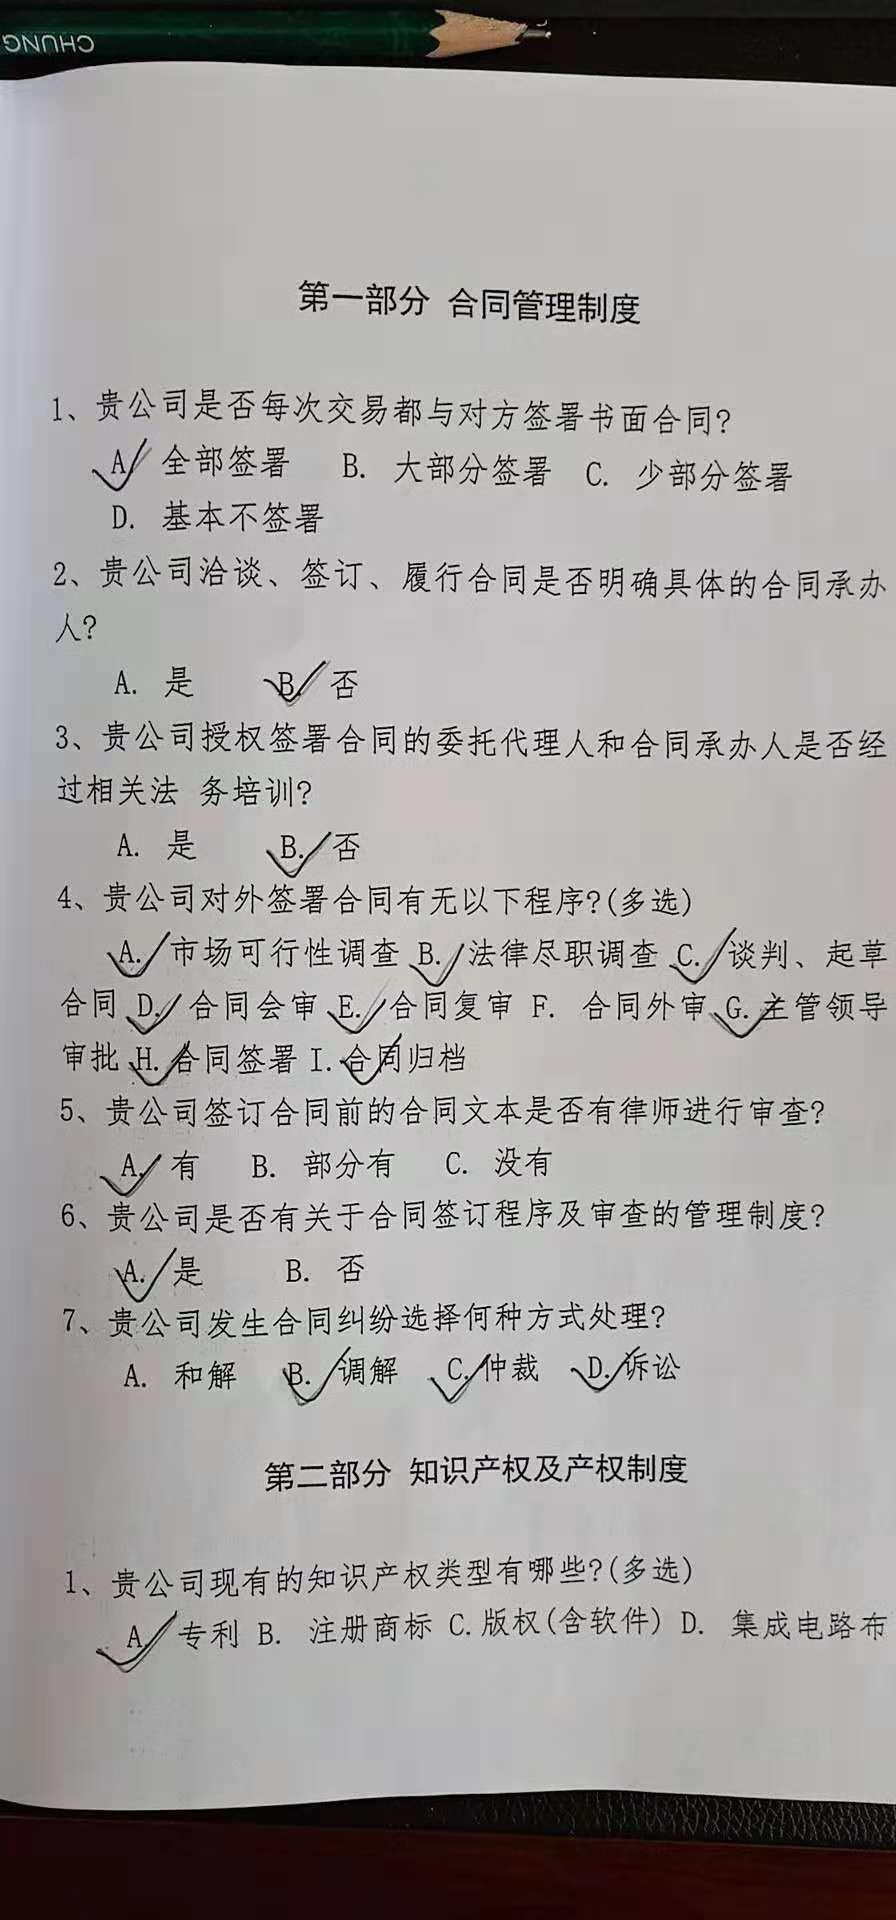 CHUNG
第一部分 合同管理制度
1、贵公司是否每次交易都与对方签署书面合同?
A. 全部签署 B. 大部分签署 C. 少部分签署
D. 基本不签署
2、贵公司洽谈、签订、履行合同是否明确具体的合同承办
人?
A. 是 B. 否
3、贵公司授权签署合同的委托代理人和合同承办人是否经
过相关法 务培训?
A. 是 B. 否
4、贵公司对外签署合同有无以下程序?(多选)
A. 市场可行性调查 B. 法律尽职调查 C. 谈判、起草
合同 D. 合同会审 E. 合同复审 F. 合同外审 G. 主管领导
审批 H. 合同签署 I. 合同归档
5、贵公司签订合同前的合同文本是否有律师进行审查?
A. 有 B. 部分有 C. 没有
6、贵公司是否有关于合同签订程序及审查的管理制度?
A. 是 B. 否
7、贵公司发生合同纠纷选择何种方式处理?
A. 和解 B. 调解 C. 仲裁 D. 诉讼
第二部分 知识产权及产权制度
1、贵公司现有的知识产权类型有哪些?(多选)
A. 专利 B. 注册商标 C.版权(含软件) D. 集成电路布